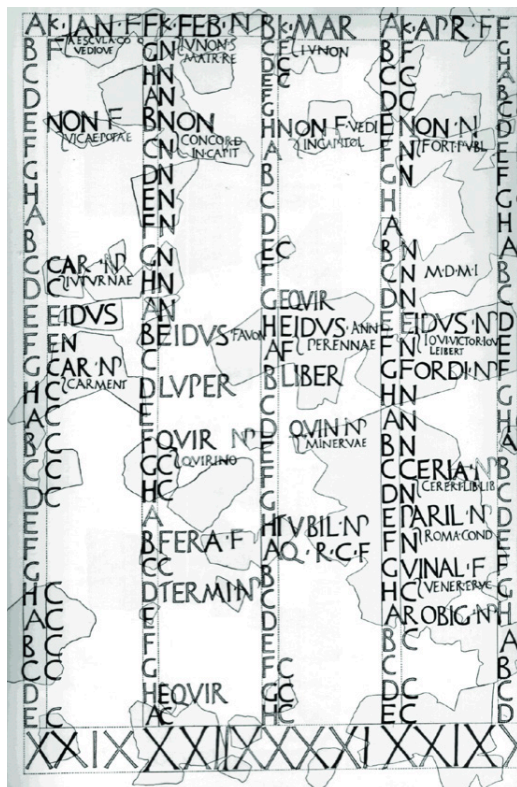 A K·IAN·F
B F AESCVLA·CO
VEDIOVE
C
D
E NON F
F VICAEPOTAE
G
H
A
B
C CAR·NP
D C IVTVRNAE
E EIDVS
F EN
G CAR·NP
H C CARMENT
A C
B C
C C
D C
E
F
G
H C
A C
B C
C C
D
E C
XXIX
F K·FEB·N
G N IVNON·S
MATR·RE
H N
A N
B NON
C N CONCORD
IN CAPIT
D N
E N
F N
G N
H N
A N
B EIDVS·FAVON
C
D LVPER
E
F QVIR NP
G C QVIRINO
H C
A
B FERA·F
C C
D TERMI·NP
E
F
G
H EQVIR
A C
XXIIX
B K·MAR
C F IVNON
D C
E C
F
G
H NON·F·VEDI
IN CAPITOL
A
B
C
D
E C
F
G EQVIR
H EIDVS·ANN
PERENNAE
A F
B LIBER
C
D QVIN NP
MINERVAE
E
F
G
H TVBIL·NP
A Q·R·C·F
B
C
D
E
F C
G C
H C
XXXI
A K·APR·F
B F
C C
D C
E NON·N
F N FORT·PVBL
G N
H
A
B N
C N M·D·M·I
D N
E EIDVS·NP
IOVI·VICTOR·IOV
LEIBERT
F N
G FORDI·NP
H N
A N
B N
C CERIA·NP
D N CERERI·LIB·LIB
E PARIL·NP
F N ROMA·COND
G VINAL·F
H C VENER·ERVC
A ROBIG·NP
B C
C
D C
E C
XXIX
F
G
H
A
B
C
D
E
F
G
H
A
B
C
D
E
F
G
H
A
B
C
D
E
F
G
H
A
B
C
D
X